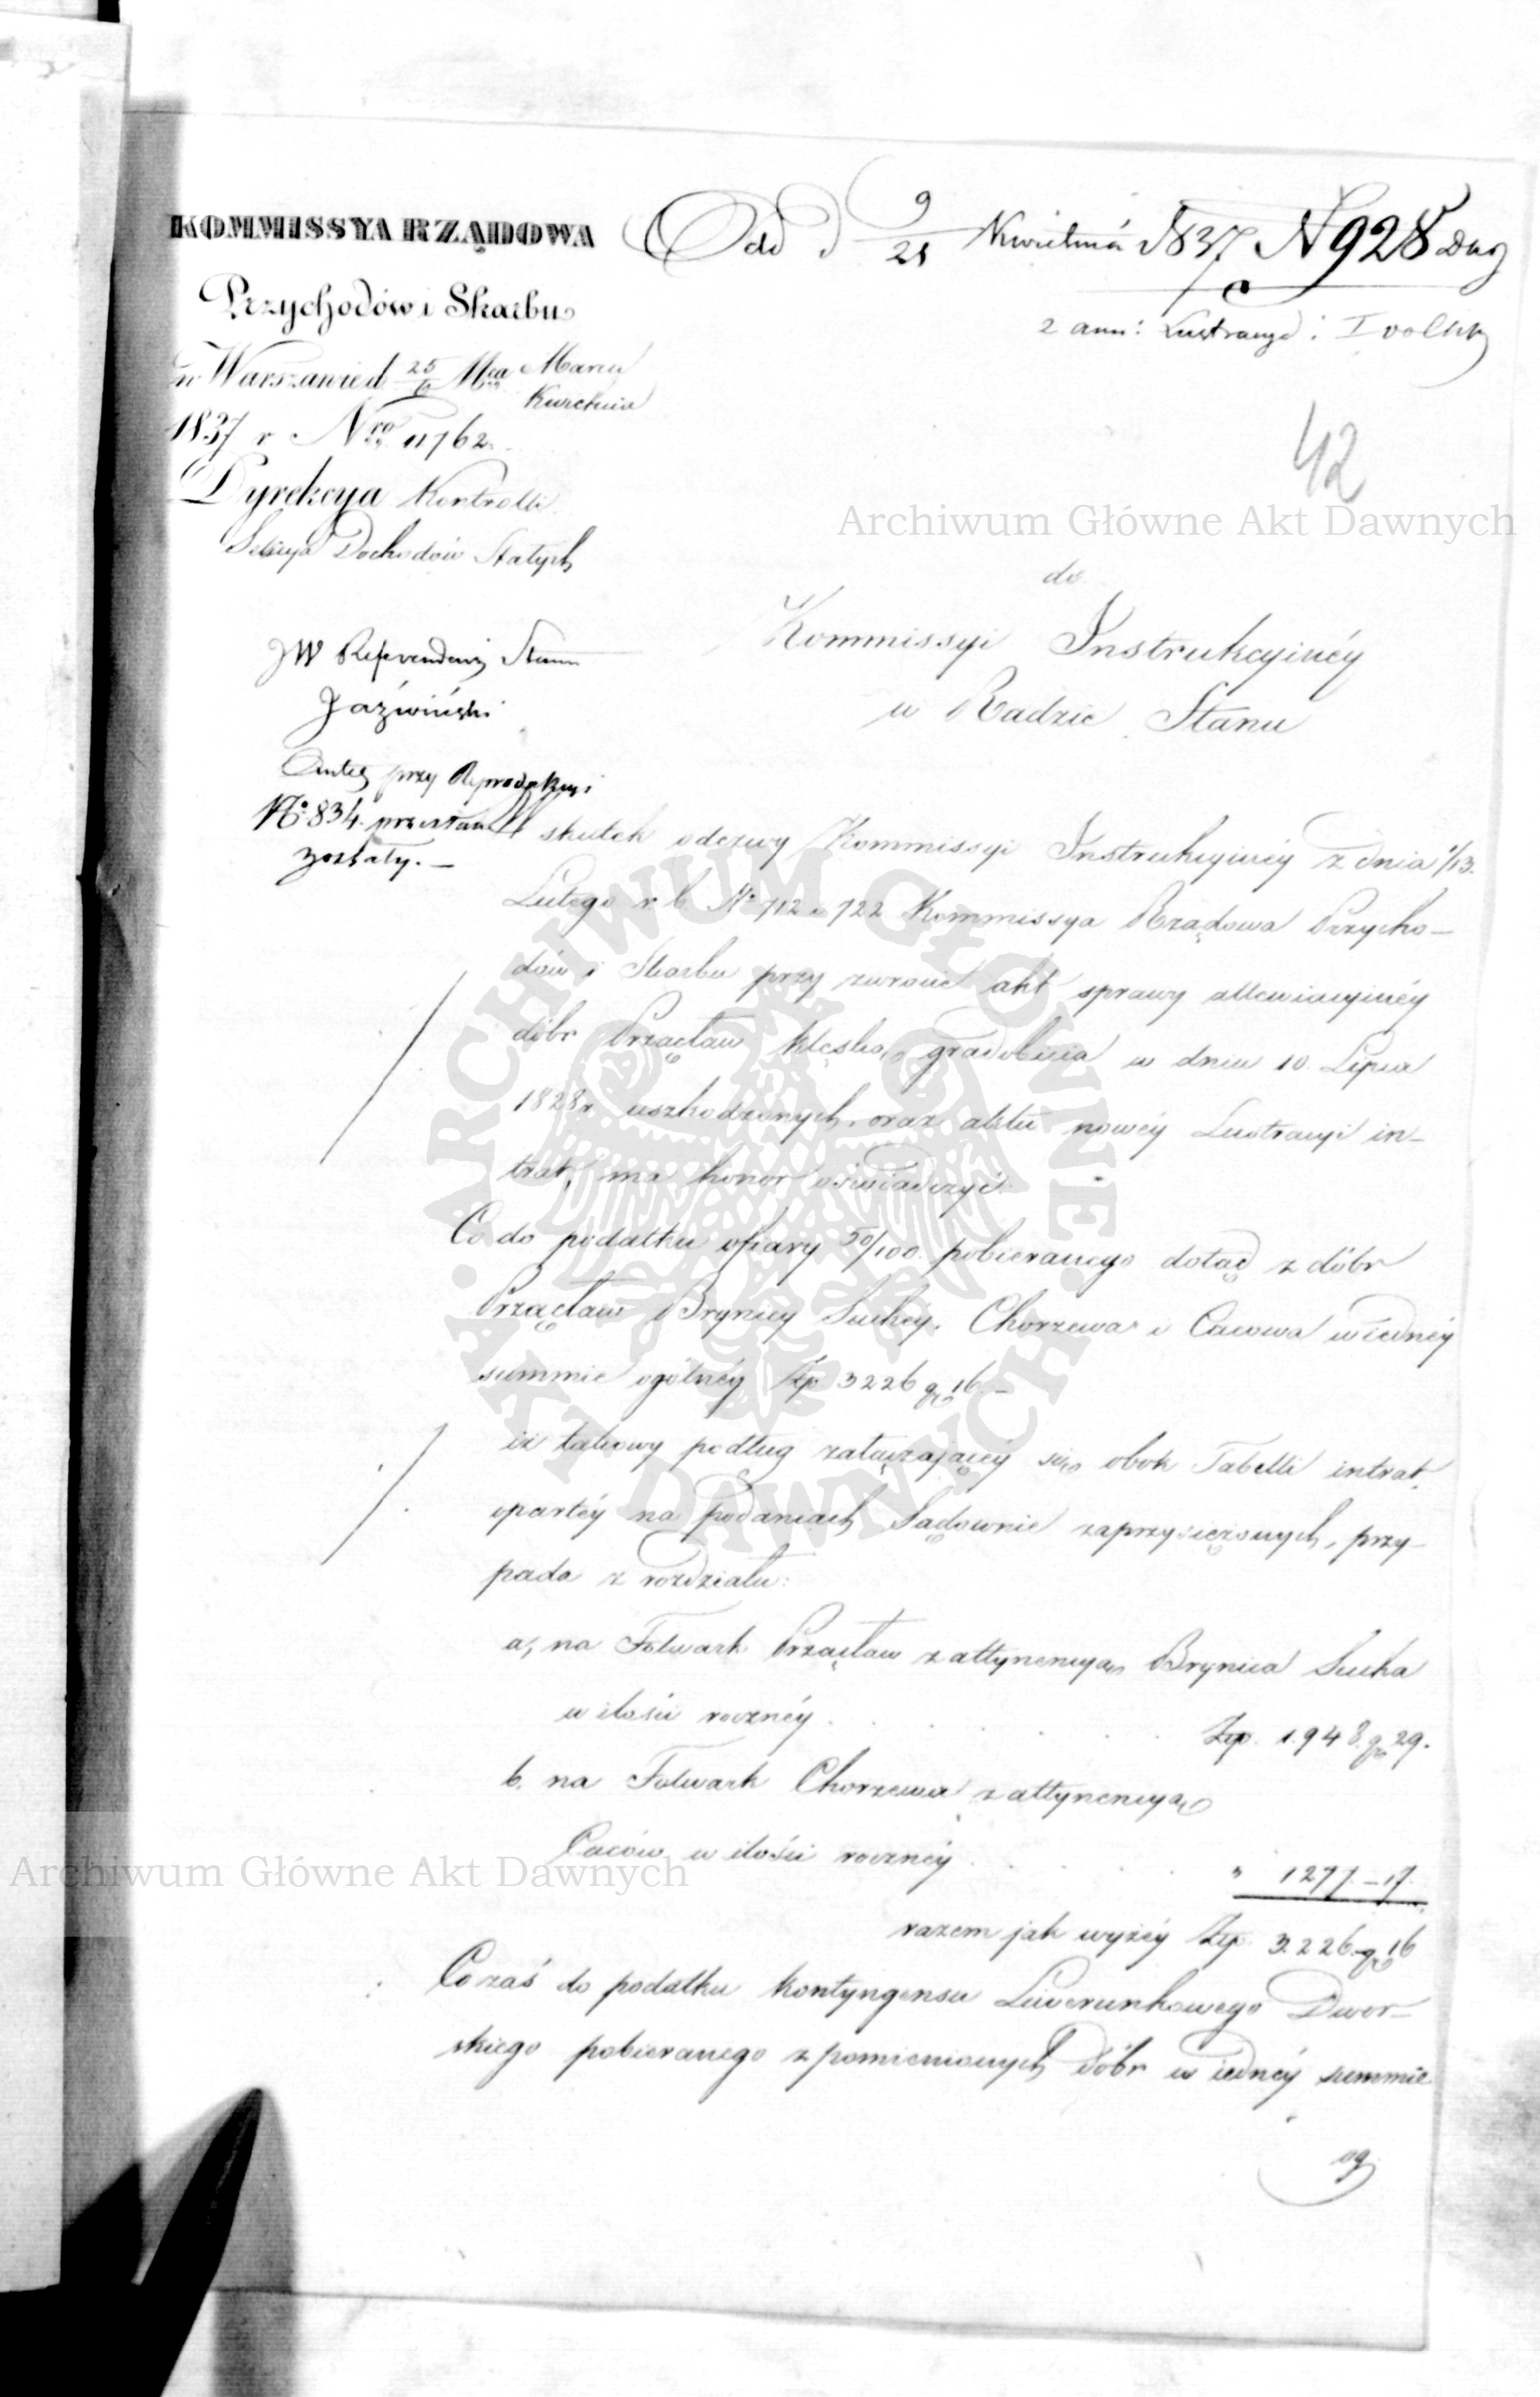 KOMMISSYA RZĄDOWA
Przychodów i Skarbu
w Warszawie d 25/6 Mca Marca
Kwietnia
1837 r Nro 11762.
Dyrekcya Kontrolli
Sekcya Dochodów Stałych
Odd d 9/21 Kwietnia 1837 N 928
2 ann: Lustracye i
42
Archiwum Główne Akt Dawnych
do
Kommissyi Instrukcyinéy
w Radzie Stanu
JW Referendarz Stanu
Jaźwiński
przy Reprodukcyi
No 834. przesłane
zostały. —
W skutek odezwy Kommissyi Instrukcyinéy z dnia 1/13.
Lutego r. b. No 712 722 Kommissya Rządowa Przycho-
dów i Skarbu przy zwrocie akt sprawy allewiacyinéy
dóbr Przącław klęską gradobicia w dniu 10. Lipca
1828 r. uszkodzonych, oraz aktu nowéy Lustracyi in-
trat, ma honor oświadczyć.
Co do podatku ofiary 50/100 pobieranego dotąd z dóbr
Przącław Brynicy Suchéy, Chorzewa i Cacowa w iednéy
summie ogólnéy Złp 3226 gr 16. —
iż takowy podług załączającéy się obok Tabelli intrat,
opartéy na podaniach Sądownie zaprzysiężonych, przy-
pada z rozdziału:
a, na Folwark Przącław z attynencyą Brynica Sucha
w ilości rocznéy . . . . . Złp. 1.948. gr 29.
b. na Folwark Chorzewa z attynencyą
Caców w ilości rocznéy . . . . " 1277. – 17.
razem jak wyżéy Złp. 3.226. gr 16
Co zaś do podatku kontyngensu Liwerunkowego Dwor-
skiego pobieranego z pomienionych dóbr w iednéy summie
og
Archiwum Główne Akt Dawnych
ARCHIWUM GŁÓWNE
AKT DAWNYCH